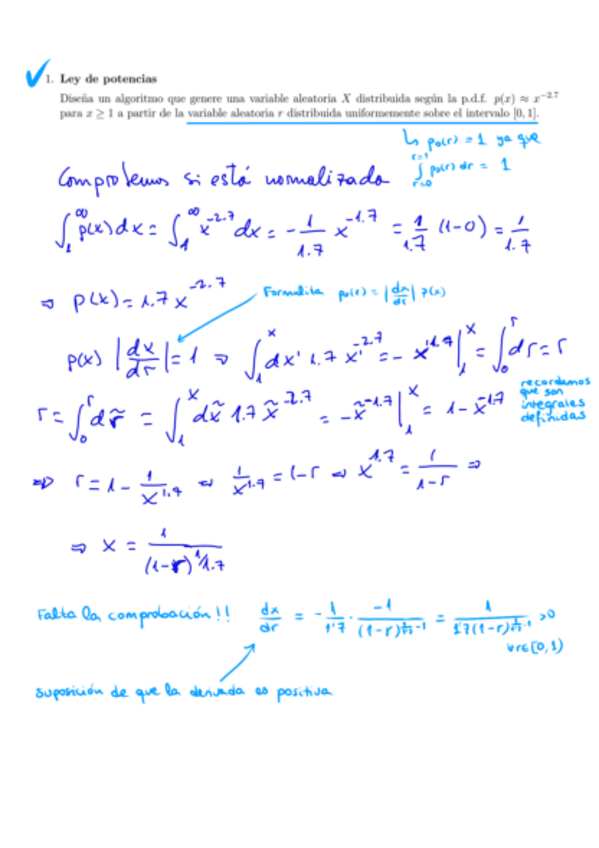 1. Ley de potencias
Diseña un algoritmo que genere una variable aleatoria X distribuida según la p.d.f. p(x) ≈ x^{-2.7}
para x ≥ 1 a partir de la variable aleatoria r distribuida uniformemente sobre el intervalo [0, 1].
↳ p₀(r) = 1 ya que
∫_{r=0}^{r=1} p₀(r) dr = 1
Comprobemos si está normalizada
∫_1^∞ p(x)dx = ∫_1^∞ x^{-2.7} dx = - 1/1.7 x^{-1.7} = 1/1.7 (1-0) = 1/1.7
⇒ p(x) = 1.7 x^{-2.7}
Formulita p₀(r) = |dx/dr| p(x)
p(x) |dx/dr| = 1 ⇒ ∫_1^x dx' 1.7 x'^{-2.7} = - x'^{-1.7} |_1^x = ∫_0^r dr = r
r = ∫_0^r dr̃ = ∫_1^x dx̃ 1.7 x̃^{-2.7} = - x̃^{-1.7} |_1^x = 1 - x^{-1.7}
recordamos
que son
integrales
definidas
⇒ r = 1 - 1/x^{1.7} ⇒ 1/x^{1.7} = 1-r ⇒ x^{1.7} = 1/(1-r) ⇒
⇒ x = 1/(1-r)^{1/1.7}
Falta la comprobación!! dx/dr = - 1/1'7 · -1/(1-r)^{1/1.7 -1} = 1/1'7(1-r)^{1/1.7 -1} > 0
∀r∈[0,1)
suposición de que la derivada es positiva